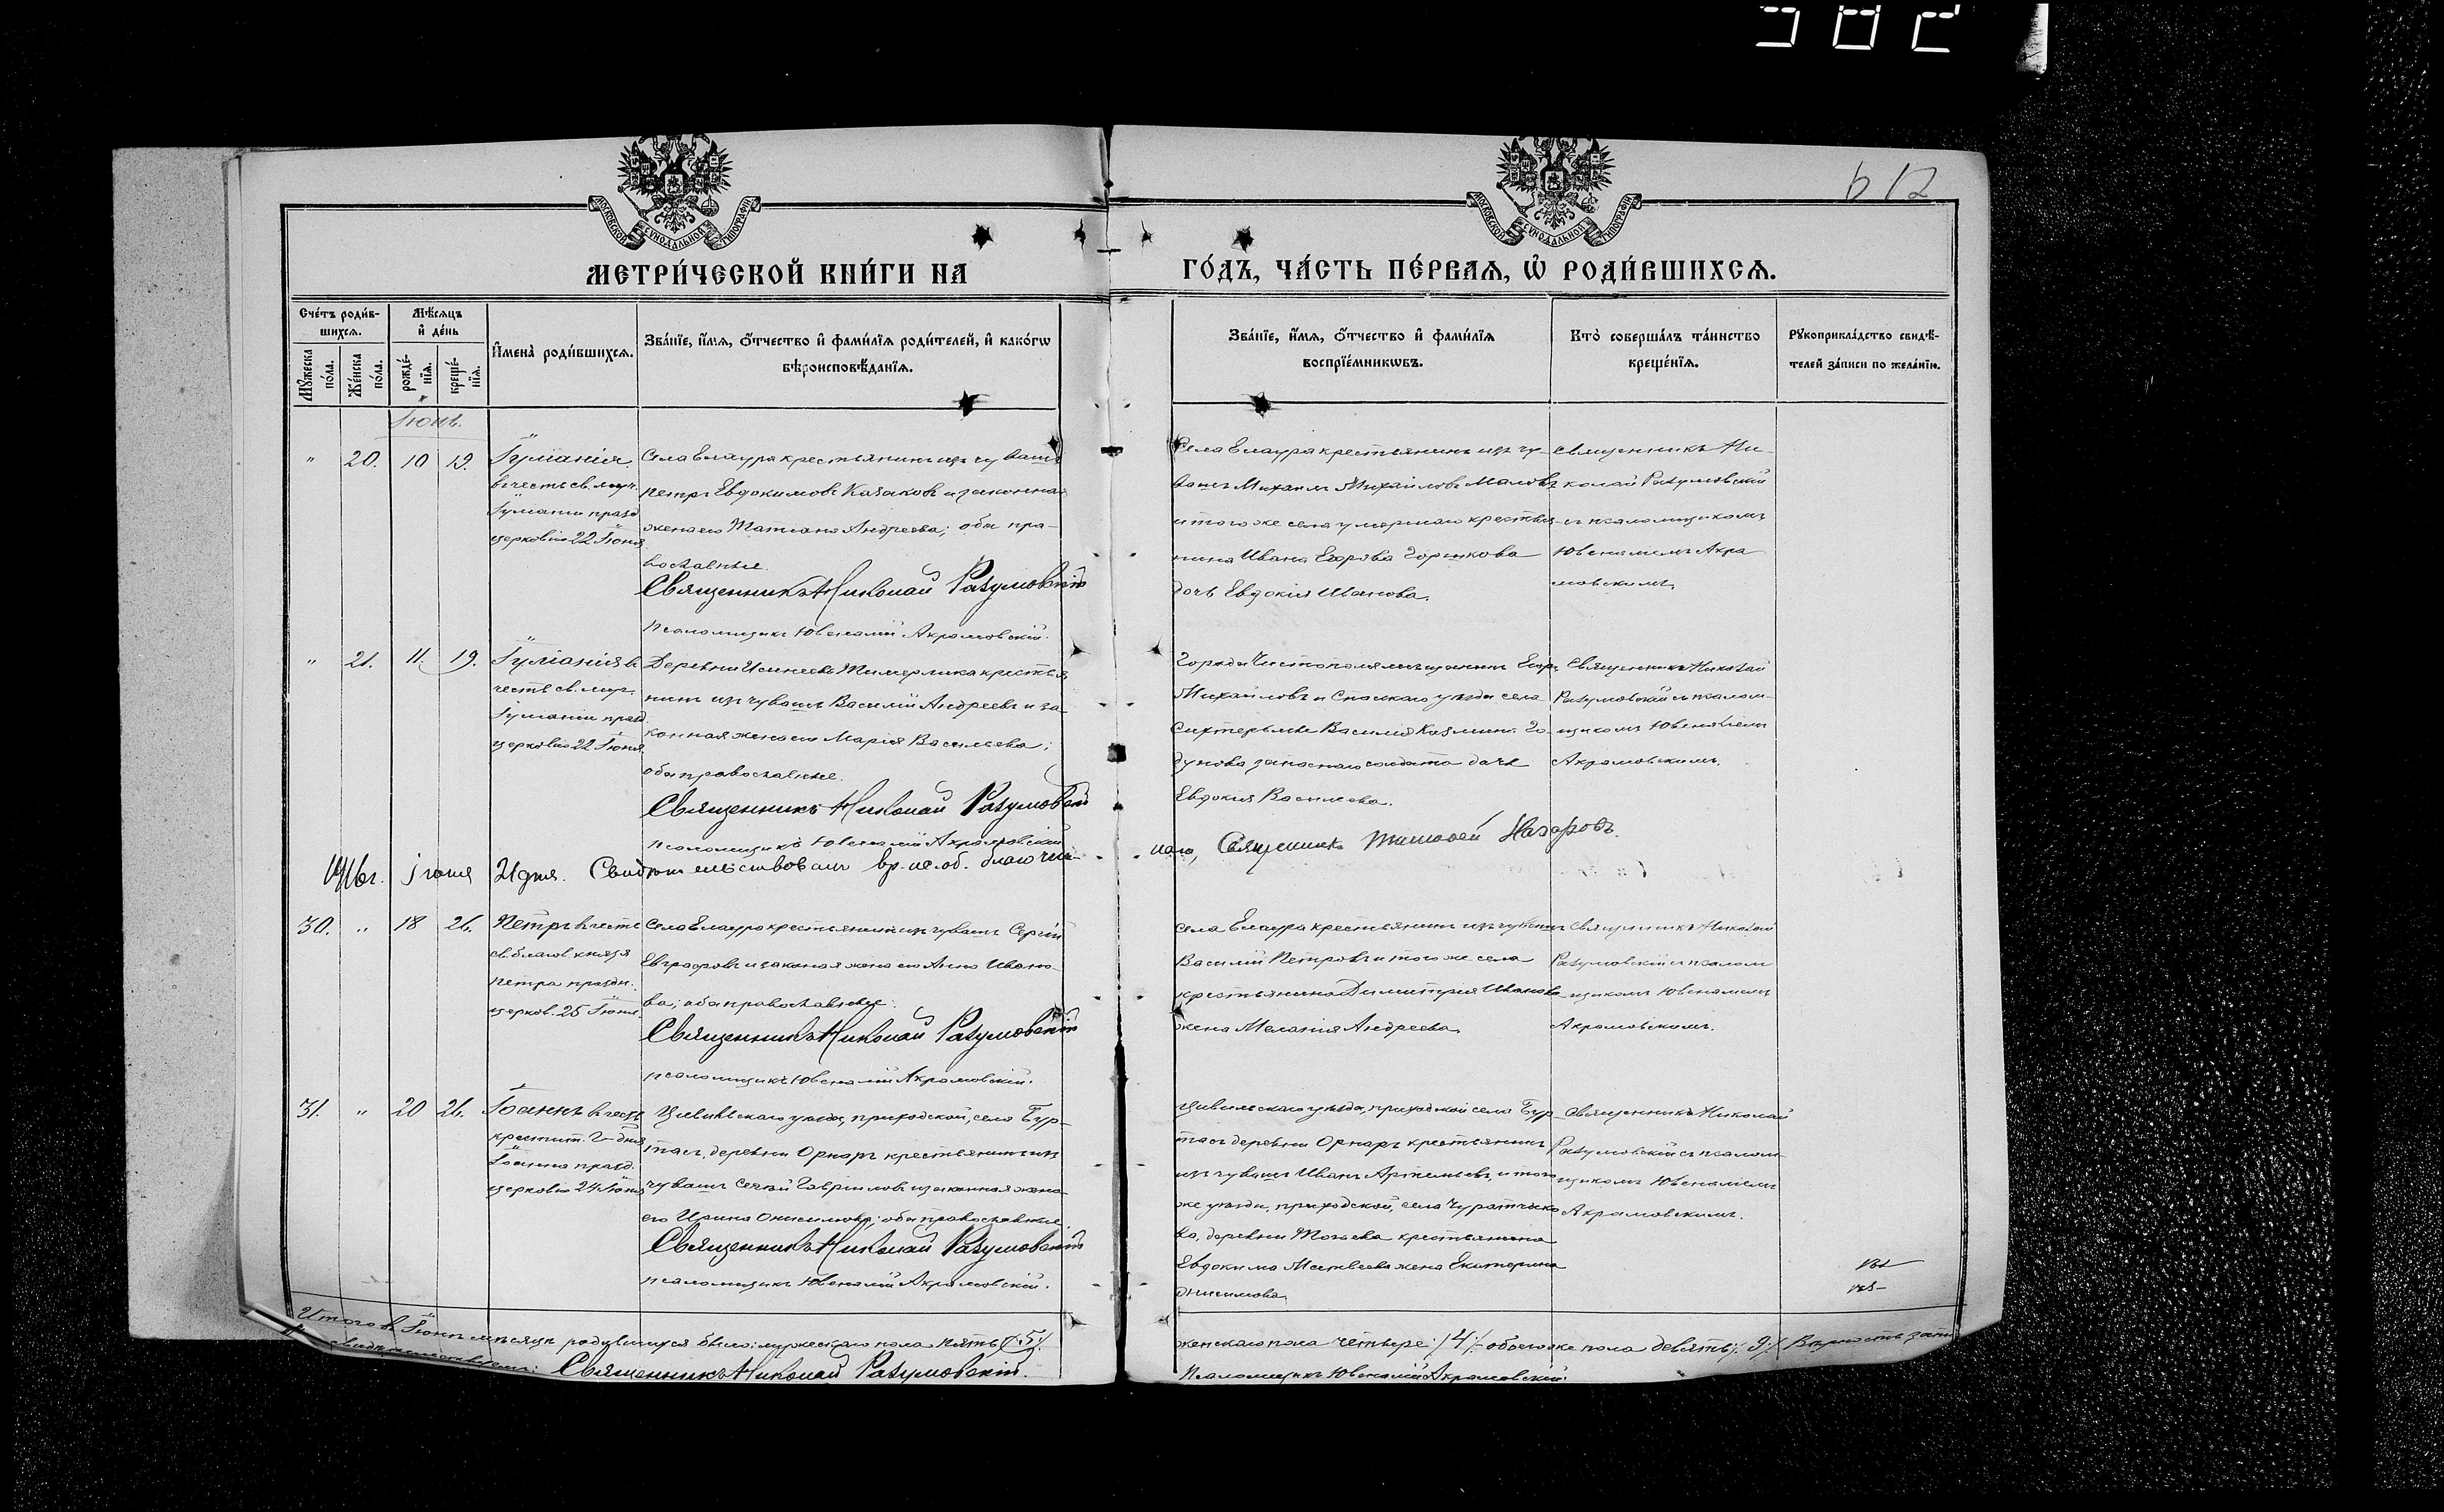 612
МОСКОВСКОЙ СѴНОДАЛЬНОЙ ТИПОГРАФІИ
МОСКОВСКОЙ СѴНОДАЛЬНОЙ ТИПОГРАФІИ
МЕТРИ́ЧЕСКОЙ КНИ́ГИ НА
ГО́ДЪ, ЧА́СТЬ ПЕ́РВАѦ, Ѡ҆ РОДИ́ВШИХСѦ.
Сче́тъ роди́в-
шихся.
Мѣ́сяцъ
и҆ де́нь
Мꙋ́жеска
по́ла.
Же́нска
по́ла.
рожде́-
нїѧ.
креще́-
нїѧ.
И҆мена̀ роди́вшихсѧ.
Зва́нїе, и҆́мѧ, ѻ҆́тчество и҆ фами́лїѧ роди́телей, и҆ како́гѡ
вѣроисповѣ́данїѧ.
Зва́нїе, и҆́мѧ, ѻ҆́тчество и҆ фами́лїѧ
воспрїе́мникѡвъ.
Кто̀ соверша́лъ та́инство
креще́нїѧ.
Рꙋкоприкла́дство свидѣ́-
телей за́писи по жела́нїю.
Іюнь.
" 20. 10 19.
Іуліанія
въ честь св. муч.
Іуліаніи празд.
церковію 22 Іюня
Села Елаура крестьянинъ изъ чувашъ
Петръ Евдокимовъ Казаковъ и законная
жена его Татіана Андреева; оба пра-
вославные.
Священникъ Николай Разумовскій
Псаломщикъ Ювеналій Акрамовскій.
Села Елаура крестьянинъ изъ чу-
вашъ Михаилъ Михайловъ Маловъ
и того же села умершаго крестья-
нина Ивана Егорова Горшкова
дочь Евдокія Иванова.
Священникъ Ни-
колай Разумовскій
съ псаломщикомъ
Ювеналіемъ Акра
мовскимъ.
" 21. 11. 19.
Іуліанія въ
честь св. муч.
Іуліаніи празд.
церковію 22 Іюня.
Деревни крестья
нинъ изъ чувашъ Василій Андреевъ и за-
конная жена его Марія Васильева;
оба православные.
Священникъ Николай Разумовскій
Псаломщикъ Ювеналій Акрамовскій
Города Чистополя мѣщанинъ Егоръ
Михайловъ и Спасскаго уѣзда села
Василія Козмина Го-
дунова запаснаго солдата дочь
Евдокія Васильева.
Священникъ Николай
Разумовскій съ псалом-
щикомъ Ювеналіемъ
Акрамовскимъ.
1916 г. іюня 21 дня. Свидѣтельствовалъ вр. ис. об. благочин-
наго, Священникъ Тимофей Назаровъ.
30. " 18 26.
Петръ въ честь
св. благов. князя
Петра праздн.
церков. 25 Іюня.
Села Елаура крестьянинъ изъ чувашъ Сергій
Евграфовъ и законная жена его Анна Ивано-
ва; оба православные.
Священникъ Николай Разумовскій
Псаломщикъ Ювеналій Акрамовскій.
Села Елаура крестьянинъ изъ чувашъ
Василій Петровъ и того же села
крестьянина Димитрія Иванова
жена Меланія Андреева.
Священникъ Николай
Разумовскій съ псалом
щикомъ Ювеналіемъ
Акрамовскимъ.
31. " 20 26.
Іоаннъ въ честь
крестит. Г-дня
Іоанна празд.
церковію 24 Іюня
Цивильскаго уѣзда, приходской, села Бур-
тасъ, деревни Орнаръ крестьянинъ изъ
чувашъ Гавріиловъ и законная жена
его Ирина Онисимова; оба православные.
Священникъ Николай Разумовскій
Псаломщикъ Ювеналій Акрамовскій.
Цивильскаго уѣзда, приходской села Бур-
тасъ деревни Орнаръ крестьянинъ
изъ чувашъ Иванъ Артемьевъ, и того
же уѣзда, приходской, села Чуратчико
ва, деревни крестьянина
Евдокима Матвеева жена Екатерина
Онисимова.
Священникъ Николай
Разумовскій съ псалом-
щикомъ Ювеналіемъ
Акрамовскимъ.
Итого въ Іюнѣ мѣсяцѣ родившихся было: мужескаго пола пять /5/.
женскаго пола четыре /4/ обоего же пола девять /9/ Вѣрность запи
свидѣтельствуемъ: Священникъ Николай Разумовскій.
Псаломщикъ Ювеналій Акрамовскій.